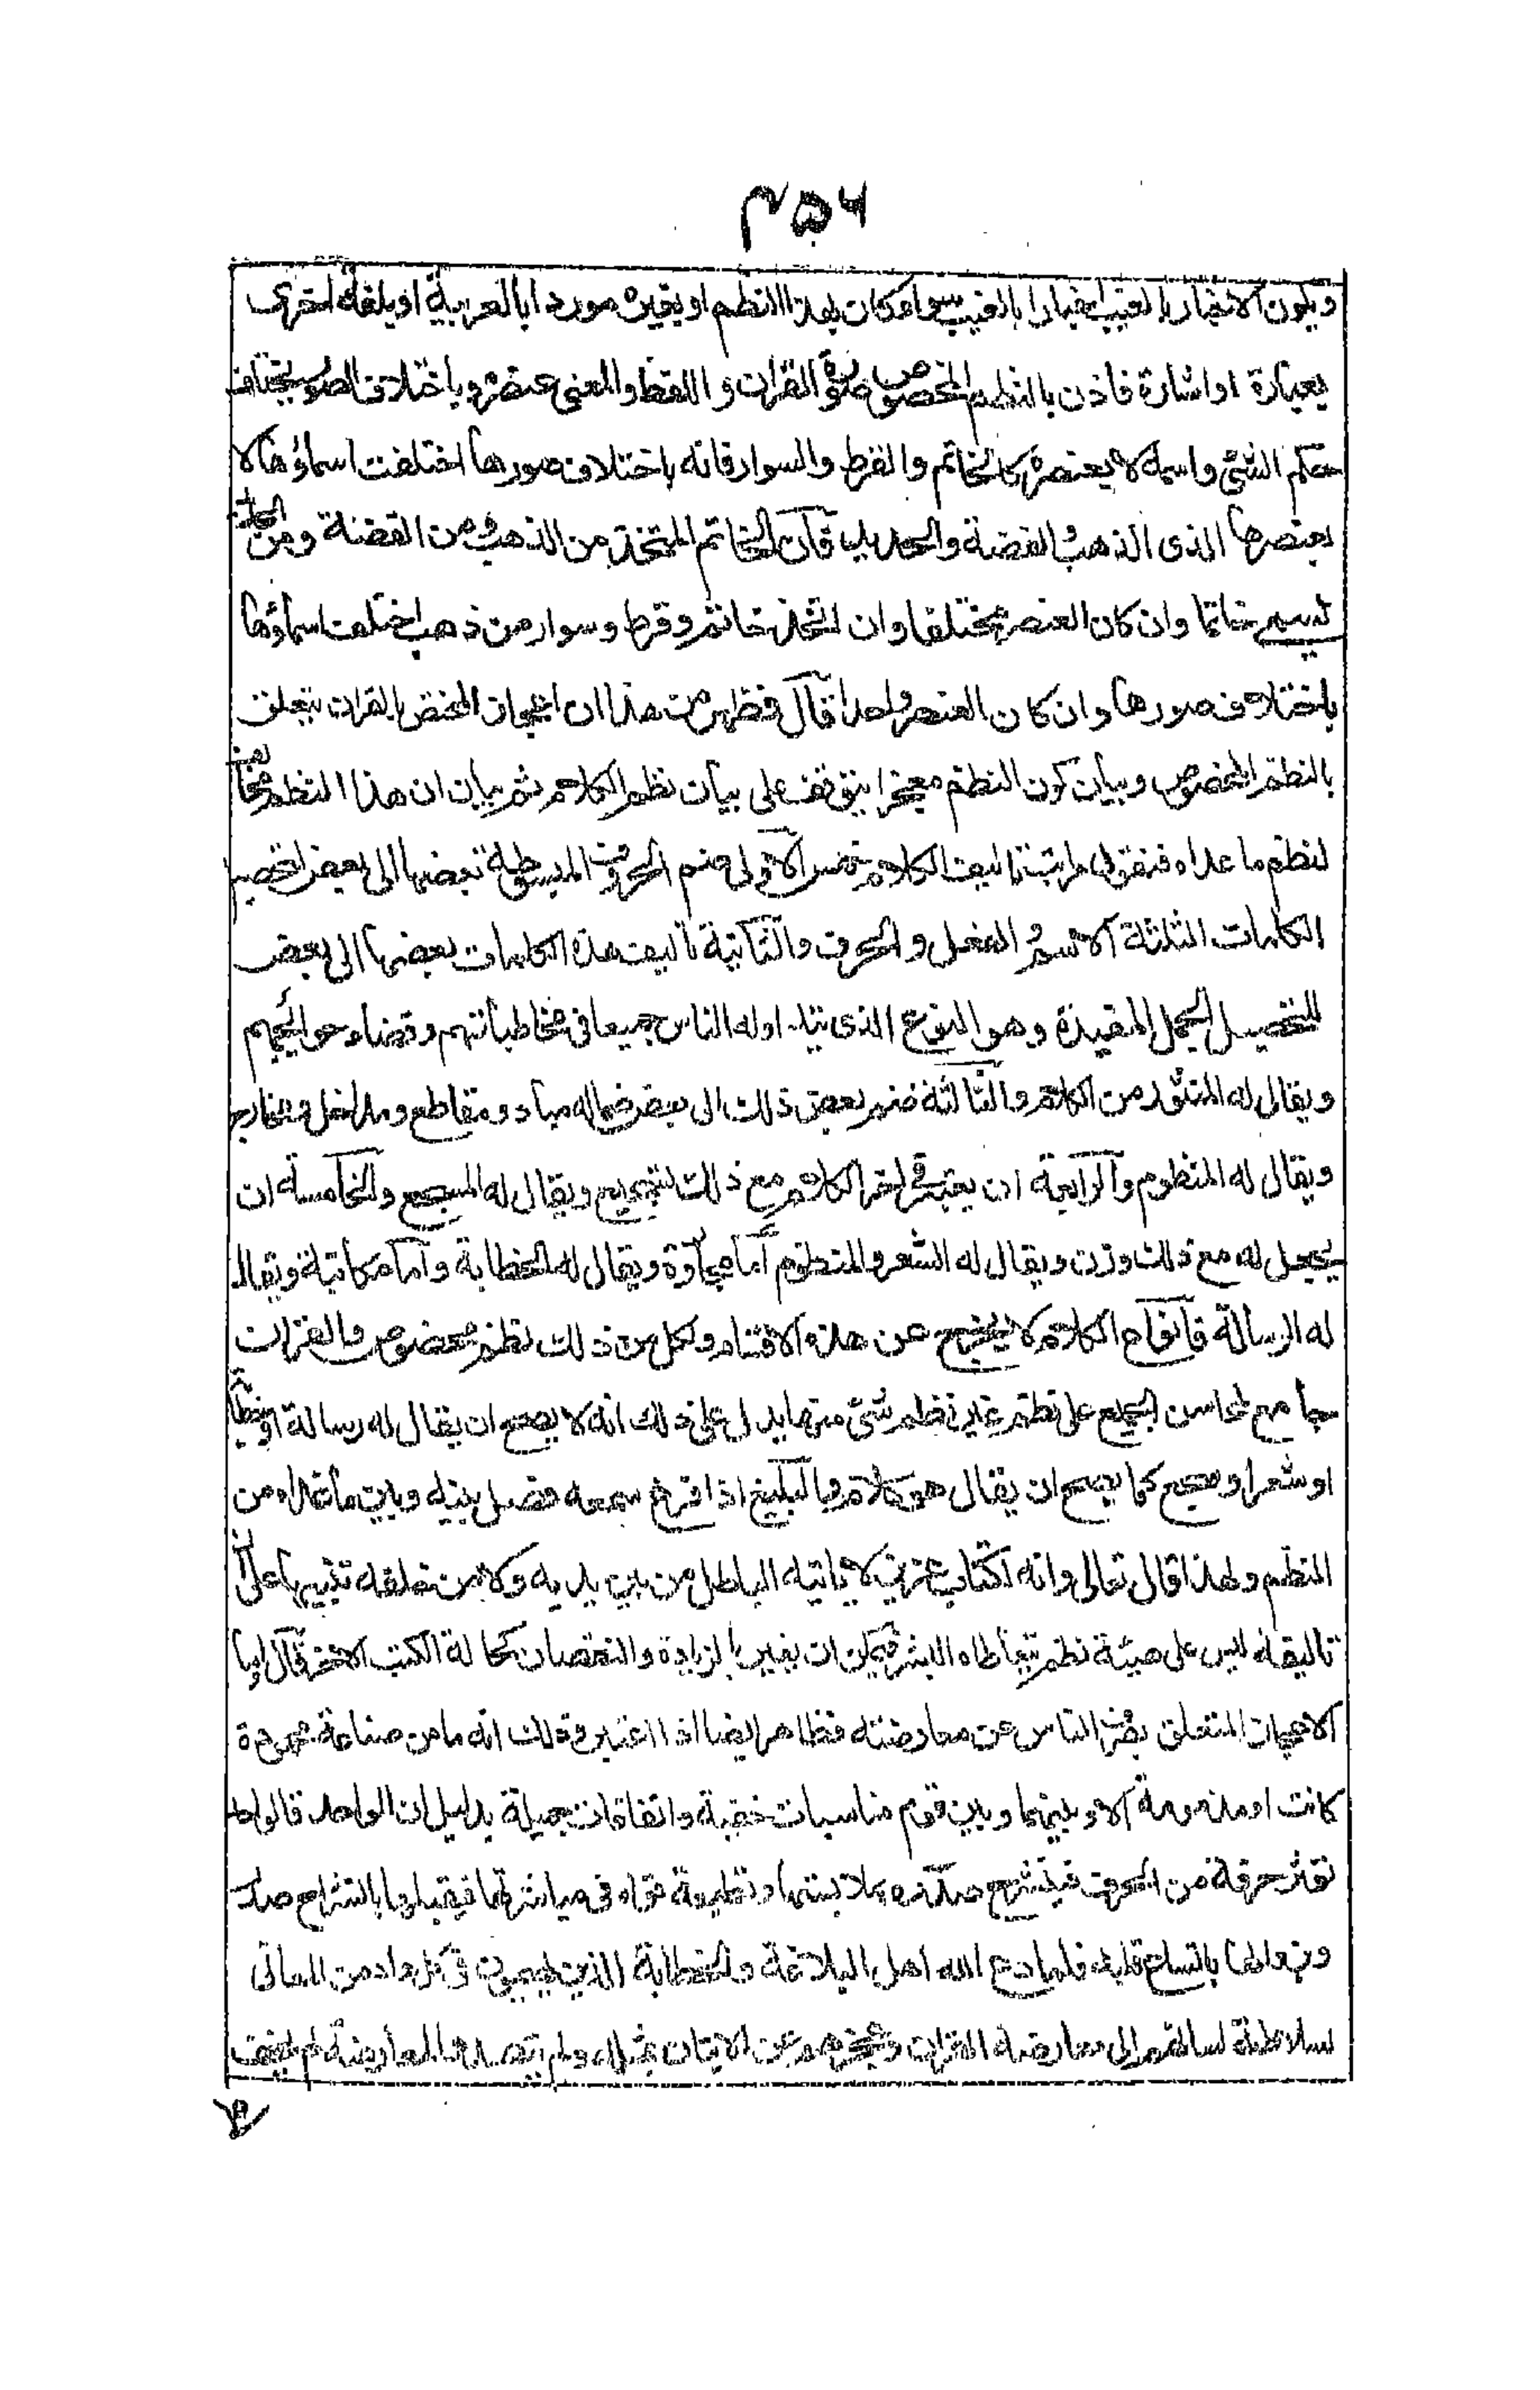 ٤٥٦
ويكون الاخبار بالغيب اخبارا بالغيب سواء كان بهذا النظم او بغيره موردا بالعربية او بلغة اخرى
بعبارة او اشارة فاذن بالنظم المخصوص صورة القران واللفظ والمعنى عنصره وباختلاف الصور يختلف
حكم الشئ واسمه لا بعنصره كالخاتم والقرط والسوار فانه باختلاف صورها اختلفت اسماؤها لا
بعنصرها الذى الذهب والفضة والحديد فان الخاتم المتخذ من الذهب ومن الفضة ومن الحديد
يسمى خاتما وان كان العنصر مختلفا وان اتخذ خاتم وقرط وسوار من ذهب اختلفت اسماؤها
باختلاف صورها وان كان العنصر واحدا قال فظهر من هذا ان الاعجاز المختص بالقران يتعلق
بالنظم المخصوص وبيان كون النظم معجزا يتوقف على بيان نظم الكلام ثم بيان ان هذا النظم مخالف
لنظم ما عداه فنقول مراتب تاليف الكلام خمس الاولى ضم الحروف المبسوطة بعضها الى بعض لتحصيل
الكلمات الثلثة الاسم والفعل والحرف والثانية تاليف هذه الكلمات بعضها الى بعض
لتحصيل الجمل المفيدة وهو النوع الذى يتداوله الناس جميعا فى مخاطباتهم وقضاء حوائجهم
ويقال له المنثور من الكلام والثالثة ضم بعض ذلك الى بعض ضما له مباد ومقاطع ومداخل ومخارج
ويقال له المنظوم والرابعة ان يعتبر فى اخر الكلام مع ذلك تسجيع ويقال له المسجع والخامسة ان
يجعل له مع ذلك وزن ويقال له الشعر والمنظوم اما محاورة ويقال له الخطابة واما مكاتبة ويقال
له الرسالة فانواع الكلام لا تخرج عن هذه الاقسام ولكل من ذلك نظم مخصوص والقران
جامع لمحاسن الجميع على نظم غير نظم شئ منها يدل على ذلك انه لا يصح ان يقال له رسالة او خطابة
او شعر او سجع كما يصح ان يقال هو كلام والبليغ اذا قرع سمعه فصل بينه وبين ما عداه من
النظم ولهذا قال تعالى وانه لكتاب عزيز لا ياتيه الباطل من بين يديه ولا من خلفه تنبيها على ان
تاليفه ليس على هيئة نظم يتعاطاه البشر فيمكن ان يغير بالزيادة والنقصان كحالة الكتب الاخر قال واما
الاعجاز المتعلق بصرف الناس عن معارضته فظاهر ايضا اذا اعتبر وذلك انه ما من صناعة محمودة
كانت او مذمومة الا وبينها وبين قوم مناسبات خفية واتفاقات جميلة بدليل ان الواحد فالواحد
يؤثر حرفة من الحرف فينشرح صدره بملابستها وتطيعه قواه فى مباشرتها فيقبلها بانشراح صدر
ويزاولها باتساع قلبه فلما دعا الله اهل البلاغة والخطابة الذين يهيمون فى كل واد من المعانى
بسلاطة لسانهم الى معارضة القران وعجزهم عن الاتيان بمثله ولم يتصدوا لمعارضته لم يخف